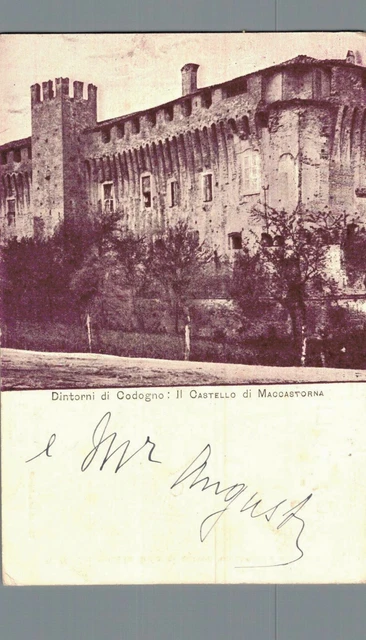 Dintorni di Codogno: Il CASTELLO di MACCASTORNA
e Mr August